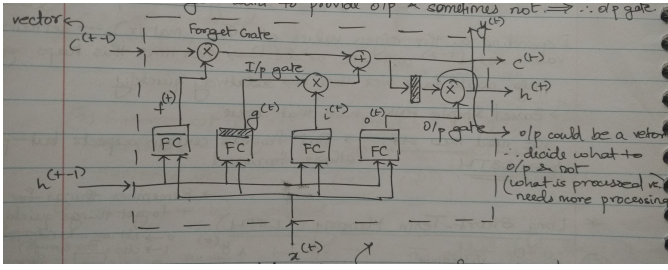 to provide o/p & sometimes not ⇒ ∴ o/p gate.
vector
y(t)
Forget Gate
c(t-1)
×
+
c(t)
I/p gate
×
×
h(t)
f(t)
g(t)
i(t)
o(t)
o/p gate
FC
FC
FC
FC
o/p could be a vector
∴ decide what to
o/p & not
(what is processed vs.
needs more processing
h(t-1)
x(t)